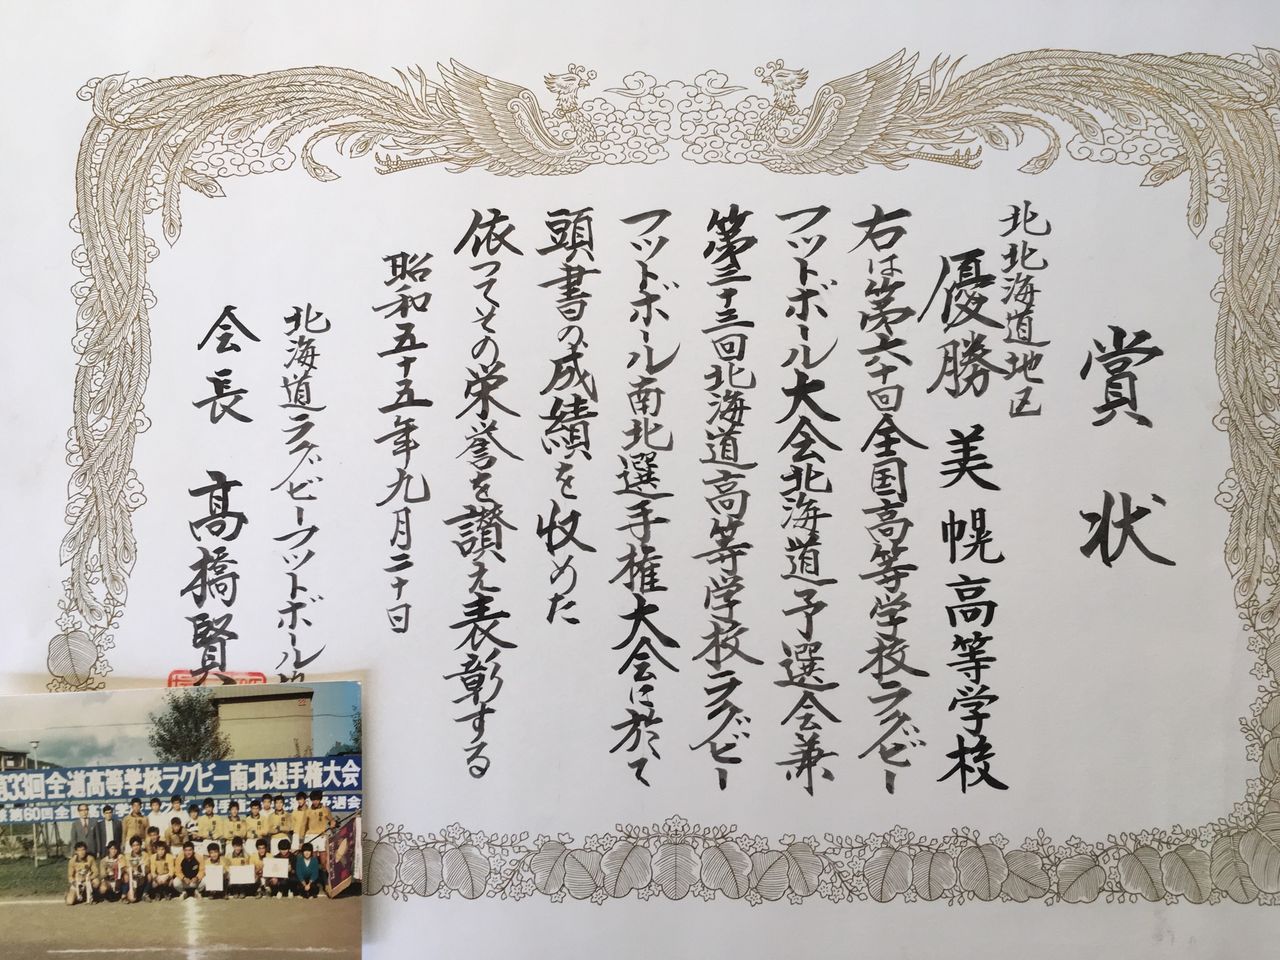 賞状
北北海道地区
優勝 美幌高等学校
右は第六十回全国高等学校ラグビー
フットボール大会北海道予選会兼
第三十三回北海道高等学校ラグビー
フットボール南北選手権大会に於て
頭書の成績を収めた
依つてその栄誉を讃え表彰する
昭和五十五年九月二十日
北海道ラグビーフットボール
会長 髙橋賢
第33回全道高等学校ラグビー南北選手権大会
第60回全国高等学校